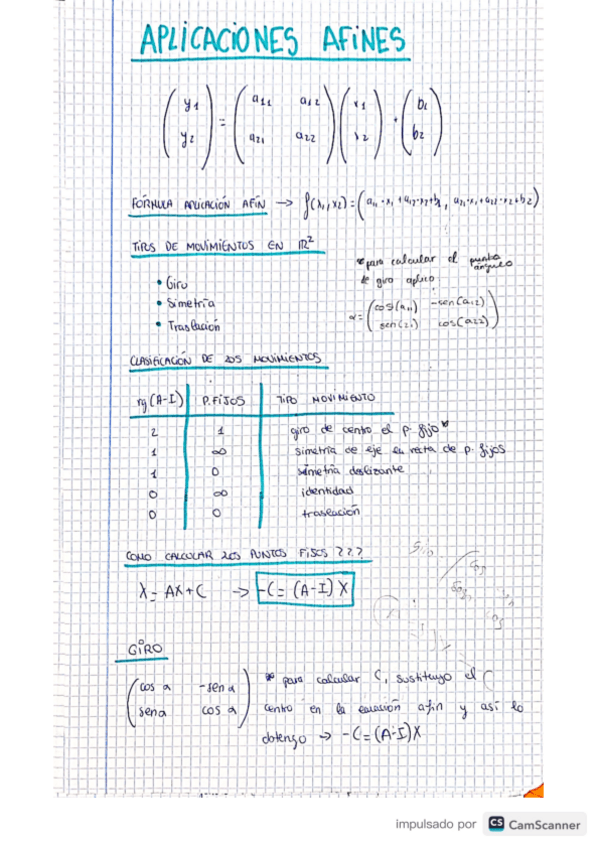 APLICACIONES AFINES
(y1 y2) = (a11 a12 a21 a22) (x1 x2) + (b1 b2)
FÓRMULA APLICACIÓN AFÍN → f(x1,x2)=(a11·x1+a12·x2+b1, a21·x1+a22·x2+b2)
TIPOS DE MOVIMIENTOS EN IR²
• Giro
• Simetría
• Traslación
*para calcular el punto
ángulo
de giro aplico
α= (cos(a11) -sen(a12)
sen(21) cos(a22))
CLASIFICACIÓN DE LOS MOVIMIENTOS
rg(A-I) P.FIJOS TIPO MOVIMIENTO
2 1 giro de centro el p. fijo*
1 ∞ simetría de eje la recta de p. fijos
1 0 simetría deslizante
0 ∞ identidad
0 0 traslación
COMO CALCULAR LOS PUNTOS FIJOS???
X = AX+C → -C = (A-I) X
GIRO
(cos a -sen a
sen a cos a)
* para calcular C, sustituyo el C
centro en la ecuación afín y así lo
obtengo → -C=(A-I)X
impulsado por CS CamScanner